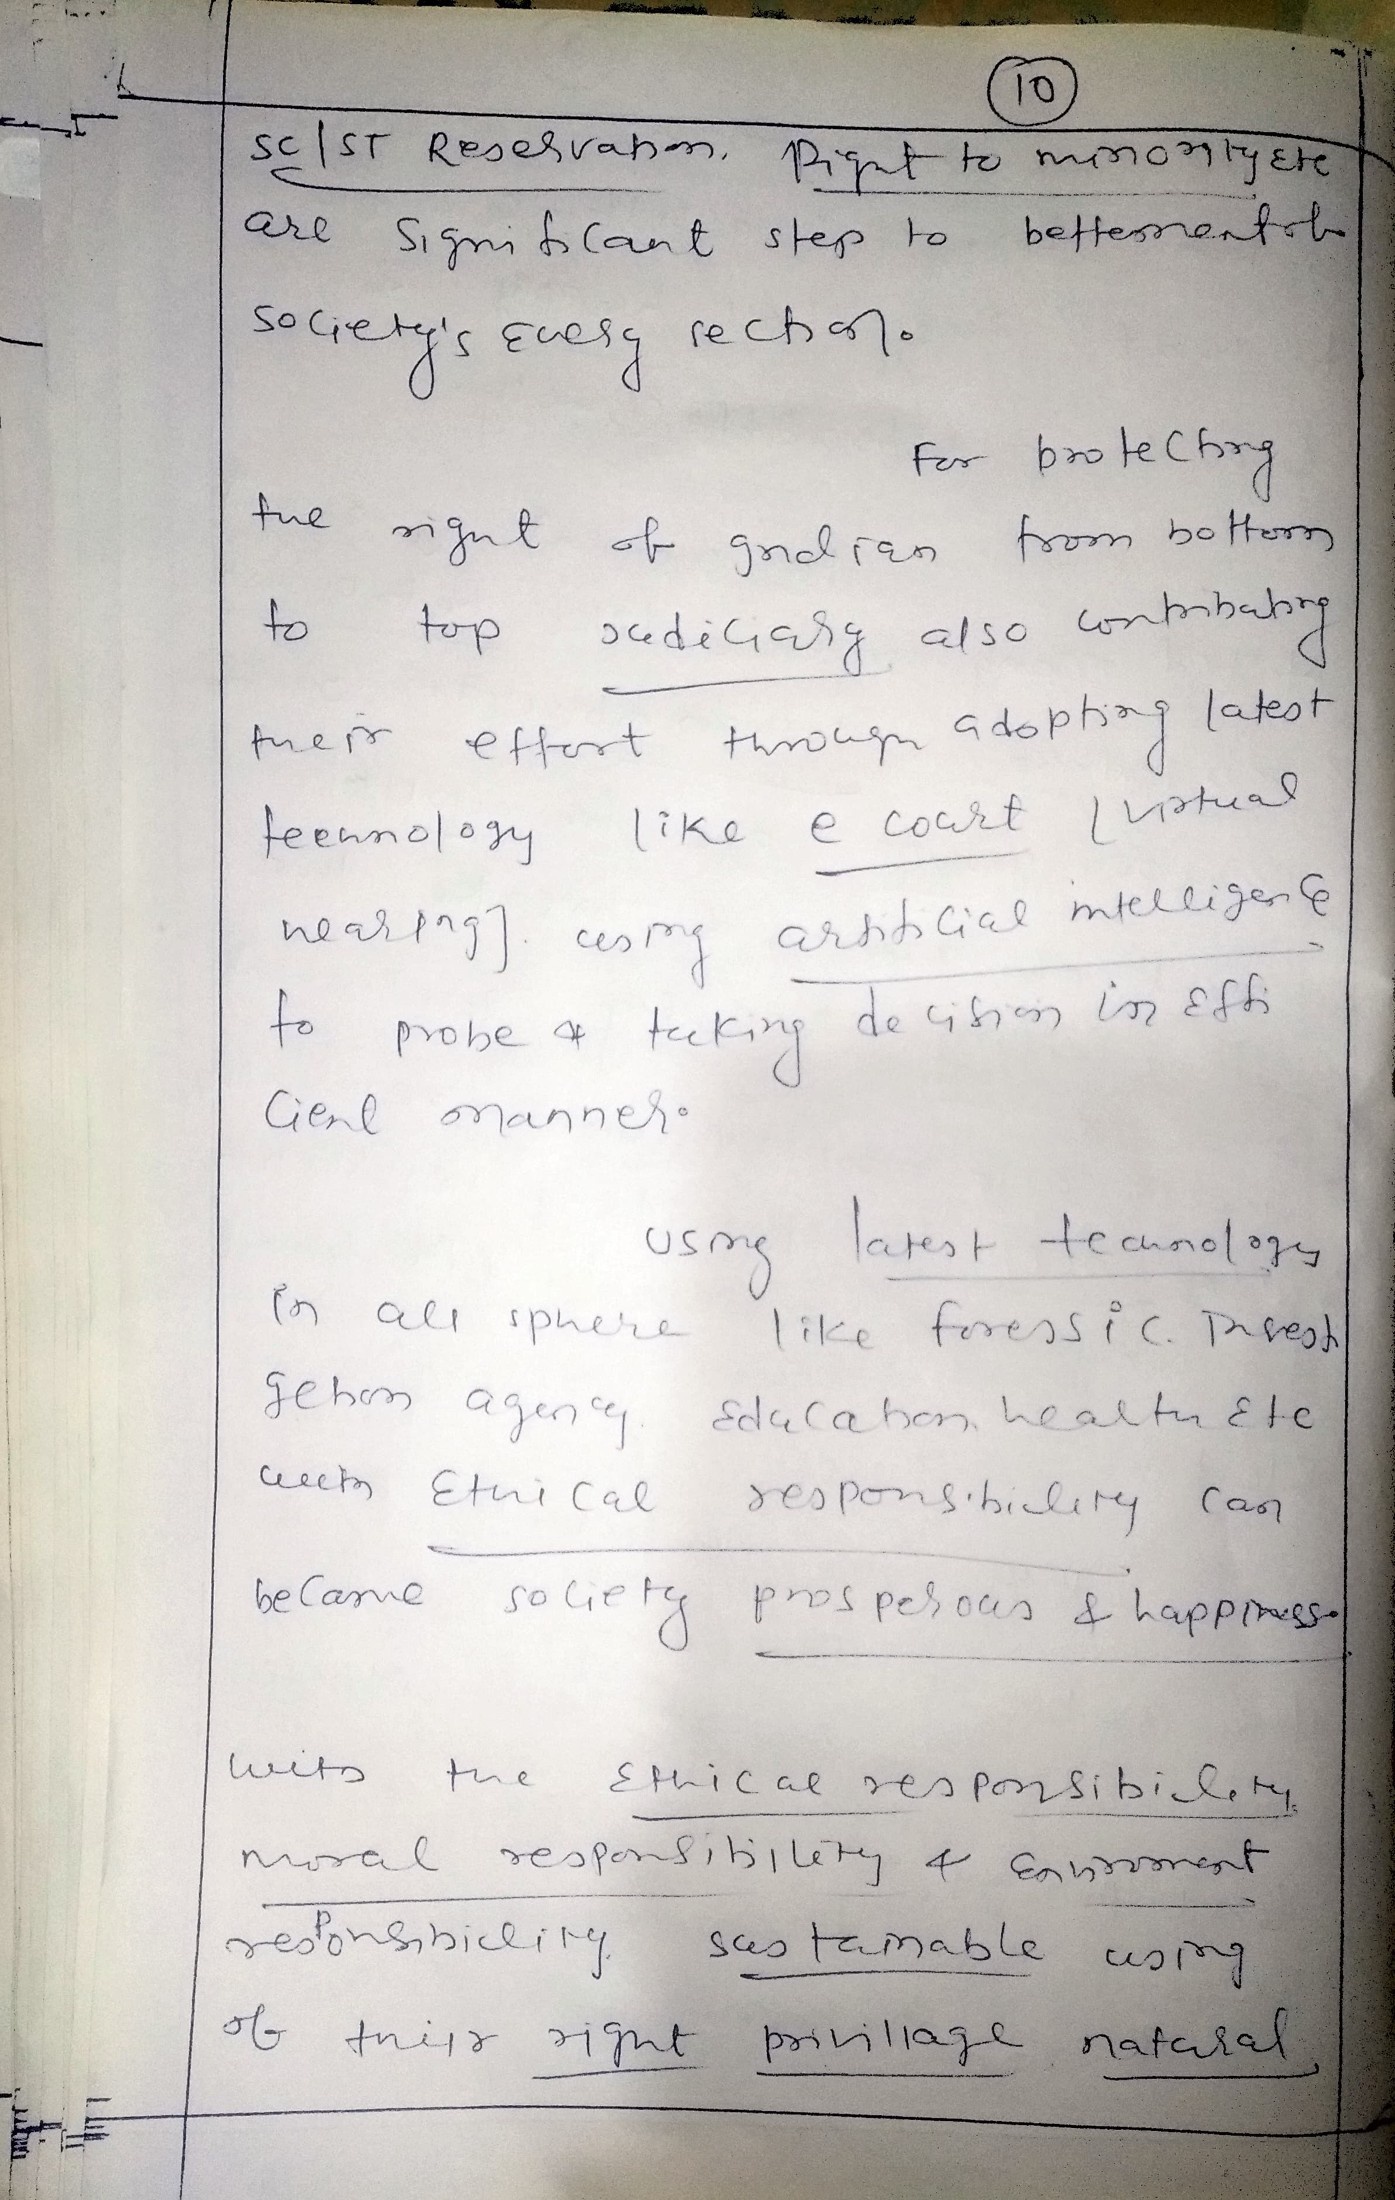 10
SC/ST Reservation. Right to minority Etc
are significant step to betterment of
society's Every section.
For protecting
the right of indian from bottom
to top judiciary also contributing
their effort through adopting latest
technology like e court [virtual
hearing]. using artificial intelligence
to probe & taking decision in Effi
cient manner.
using latest technology
in all sphere like forensic. Investi
gation agency. Education. health Etc
with Ethical responsibility can
became society prosperous & happiness.
with the Ethical responsibility,
moral responsibility & Enviroment
responsibility. sustainable using
of their right privillage natural